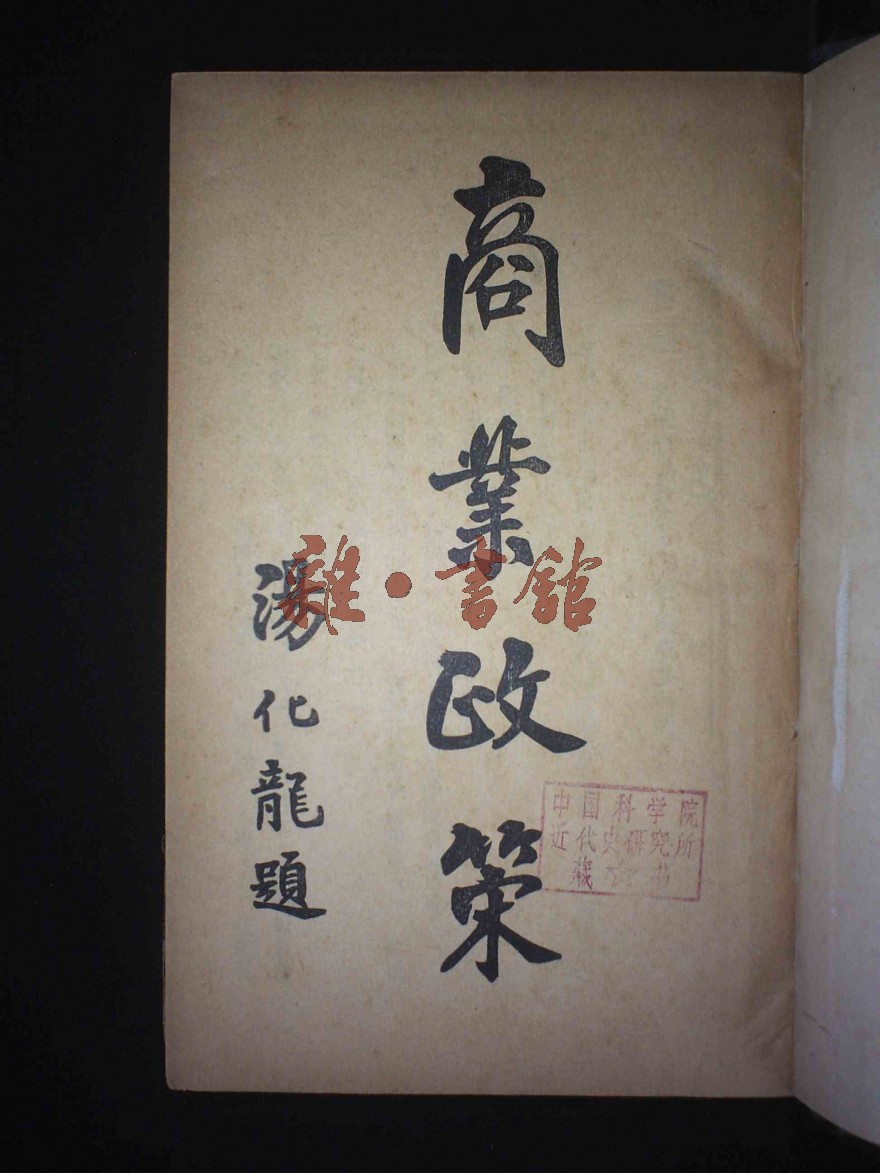 商業政策
湯化龍題
雜·書館
中国科学院
近代史研究所
藏☆书